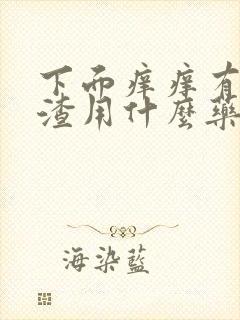 下面痒痒有
渣用什麼藥
海染藍